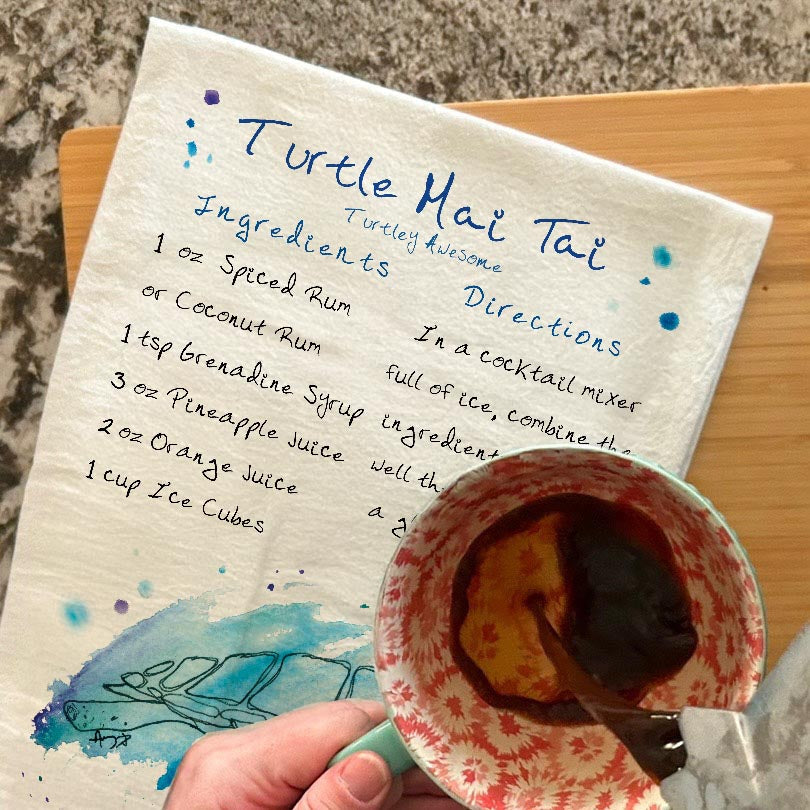 Turtle Mai Tai
Turtley Awesome
Ingredients
1 oz Spiced Rum
or Coconut Rum
1 tsp Grenadine Syrup
3 oz Pineapple Juice
2 oz Orange Juice
1 cup Ice Cubes
Directions
In a cocktail mixer
full of ice, combine the
well
a